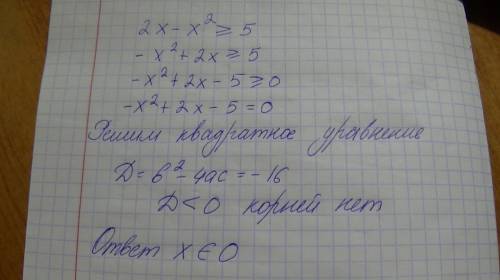 2x - x² ≥ 5
- x² + 2x ≥ 5
-x² + 2x - 5 ≥ 0
-x² + 2x - 5 = 0
Решим квадратное уравнение
D = b² - 4ac = -16
D < 0 корней нет
Ответ x ∈ 0